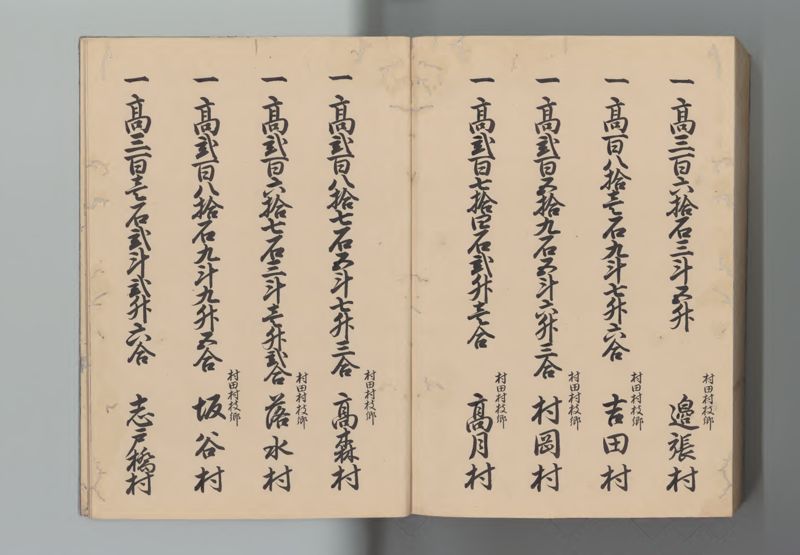 一高三百六拾石三斗五升
村田村枝郷
邉張村
一高百八拾壱石九斗七升六合
村田村枝郷
吉田村
一高弐百五拾九石五斗六升三合
村田村枝郷
村岡村
一高弐百七拾四石弐升壱合
村田村枝郷
高月村
一高弐百八拾七石五斗七升三合
村田村枝郷
高森村
一高弐百六拾七石三斗壱升弐合
村田村枝郷
落水村
一高弐百八拾石九斗九升五合
村田村枝郷
坂谷村
一高三百壱石弐斗弐升六合
志戸橋村